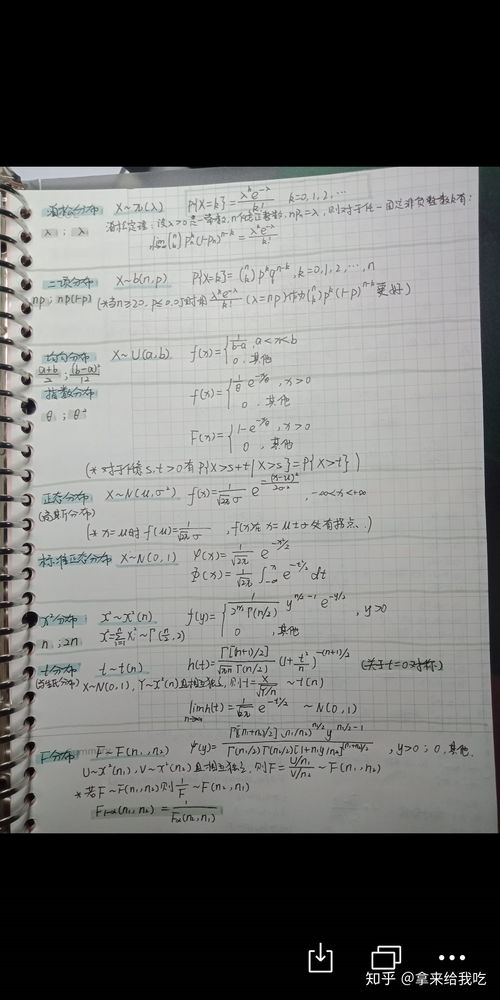 泊松分布 X~π(λ) P{X=k}=λ^k e^{-λ}/k! k=0,1,2,…
λ ; λ 泊松定理：设λ>0是一常数，n任意正整数，np_n=λ，则对于任一固定非负整数k有：
lim_{n→∞} (n k) p_n^k (1-p_n)^{n-k} = λ^k e^{-λ}/k!
二项分布 X~b(n,p) P{X=k}=(n k) p^k q^{n-k}, k=0,1,2,…,n
np ; np(1-p) (*当n≥20, p≤0.05时用 λ^k e^{-λ}/k! (λ=np)作为(n k) p^k (1-p)^{n-k} 更好)
均匀分布 X~U(a,b) f(x)={ 1/(b-a), a<x<b
(a+b)/2 ; (b-a)²/12 0, 其他
指数分布 f(x)={ 1/θ e^{-x/θ}, x>0
θ ; θ² 0, 其他
F(x)={ 1-e^{-x/θ}, x>0
0, 其他
(*对于任意s,t>0有P{X>s+t|X>s}=P{X>t})
正态分布 X~N(μ,σ²) f(x)=1/(√2π σ) e^{-(x-μ)²/2σ²}, -∞<x<+∞
(高斯分布) (*x=μ时f(μ)=1/(√2π σ), f(x)在x=μ±σ处有拐点.)
标准正态分布 X~N(0,1) φ(x)=1/√2π e^{-x²/2}
Φ(x)=1/√2π ∫_{-∞}^{x} e^{-t²/2} dt
χ²分布 χ²~χ²(n) f(y)={ 1/(2^{n/2} Γ(n/2)) y^{n/2-1} e^{-y/2}, y>0
n ; 2n χ²=Σ_{i=1}^{n} X_i²~Γ(n/2, 2) 0, 其他
t分布 t~t(n) h(t)=Γ[(n+1)/2]/(√πn Γ(n/2)) (1+t²/n)^{-(n+1)/2} (关于t=0对称)
X~N(0,1), Y~χ²(n)且相互独立, 则t=X/√(Y/n) ~t(n)
lim_{n→∞} h(t)=1/√2π e^{-t²/2} ~N(0,1)
F分布 F~F(n₁,n₂) ψ(y)=Γ[(n₁+n₂)/2](n₁/n₂)^{n₁/2} y^{n₁/2-1}/(Γ(n₁/2)Γ(n₂/2)[1+n₁y/n₂]^{(n₁+n₂)/2}), y>0 ; 0, 其他.
U~χ²(n₁), V~χ²(n₂)且相互独立, 则F=(U/n₁)/(V/n₂) ~F(n₁,n₂)
*若F~F(n₁,n₂)则1/F ~F(n₂,n₁)
F_{1-α}(n₁,n₂)=1/F_α(n₂,n₁)
知乎 @拿来给我吃